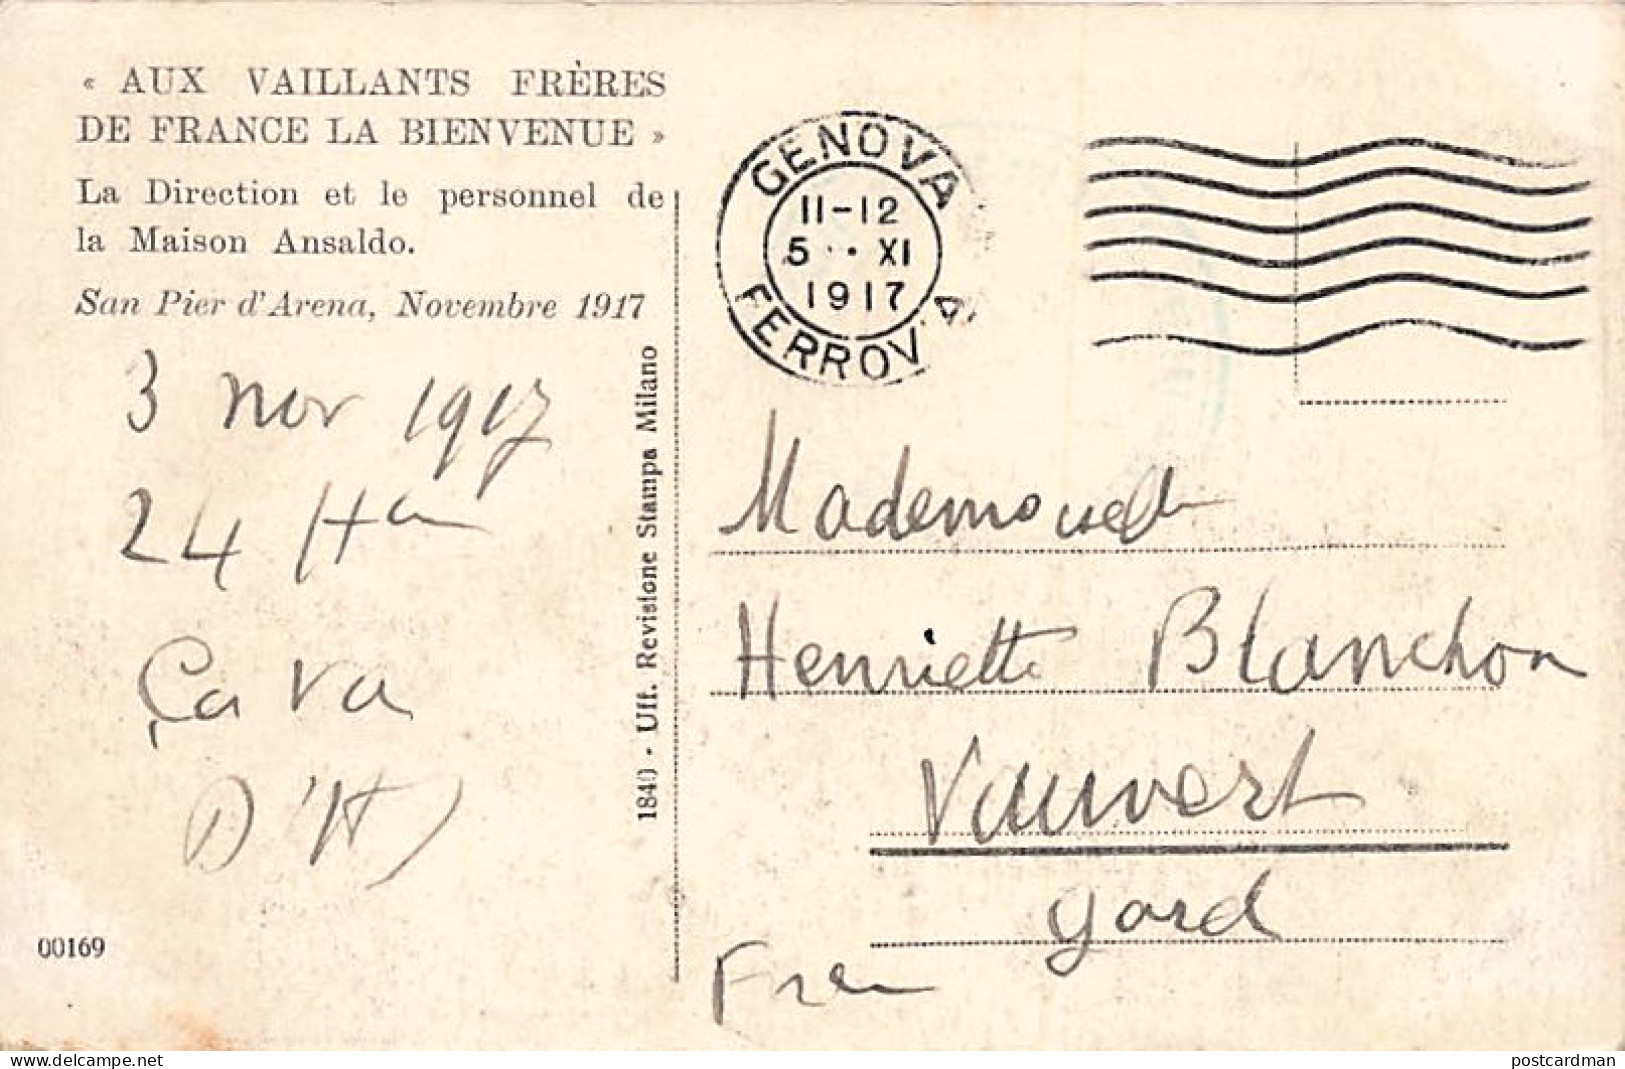 « AUX VAILLANTS FRÈRES
DE FRANCE LA BIENVENUE »
La Direction et le personnel de
la Maison Ansaldo.
San Pier d'Arena, Novembre 1917
3 nov 1917
24 H
Ça va
00169
1840 - Uff. Revisione Stampa Milano
GENOVA
11-12
5 XI
1917
FERROVIA
Mademoiselle
Henriette Blanchon
Vauvert
Gard
www.delcampe.net
postcardman